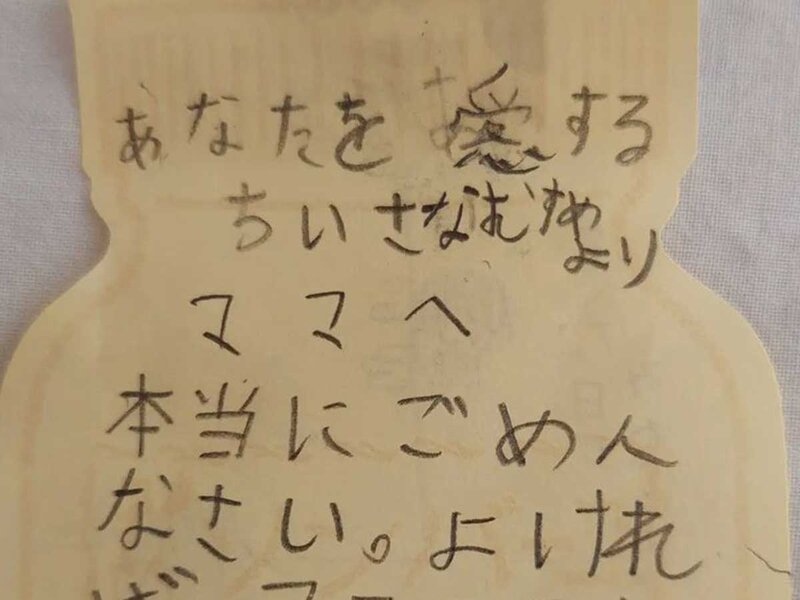 あなたを愛する
ちいさなむすめ
より
ママへ
本当にごめん
なさい。よけれ